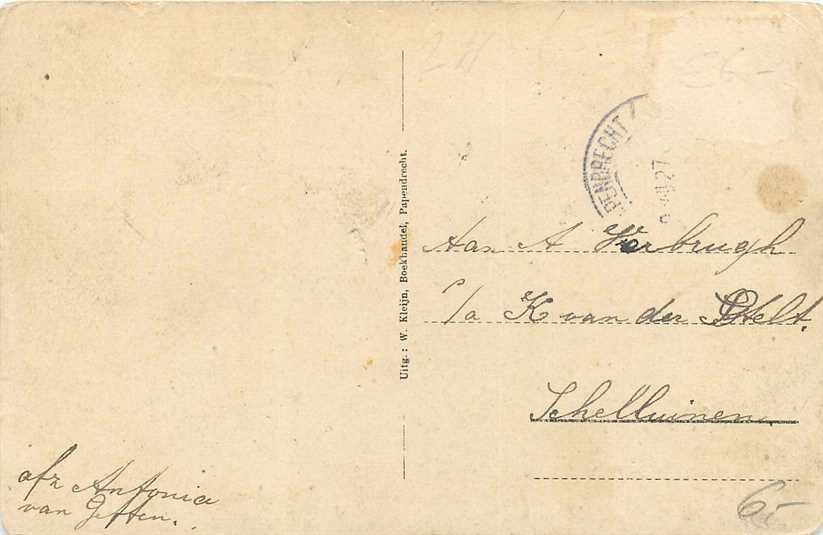 24
£6-
PENDRECHT
27
Uitg.: W. Kleijn, Boekhandel, Papendrecht.
Aan A Verbrugh
c/a K van der Stelt.
Schelluinen
6-
afz Antonia
van Jetten.